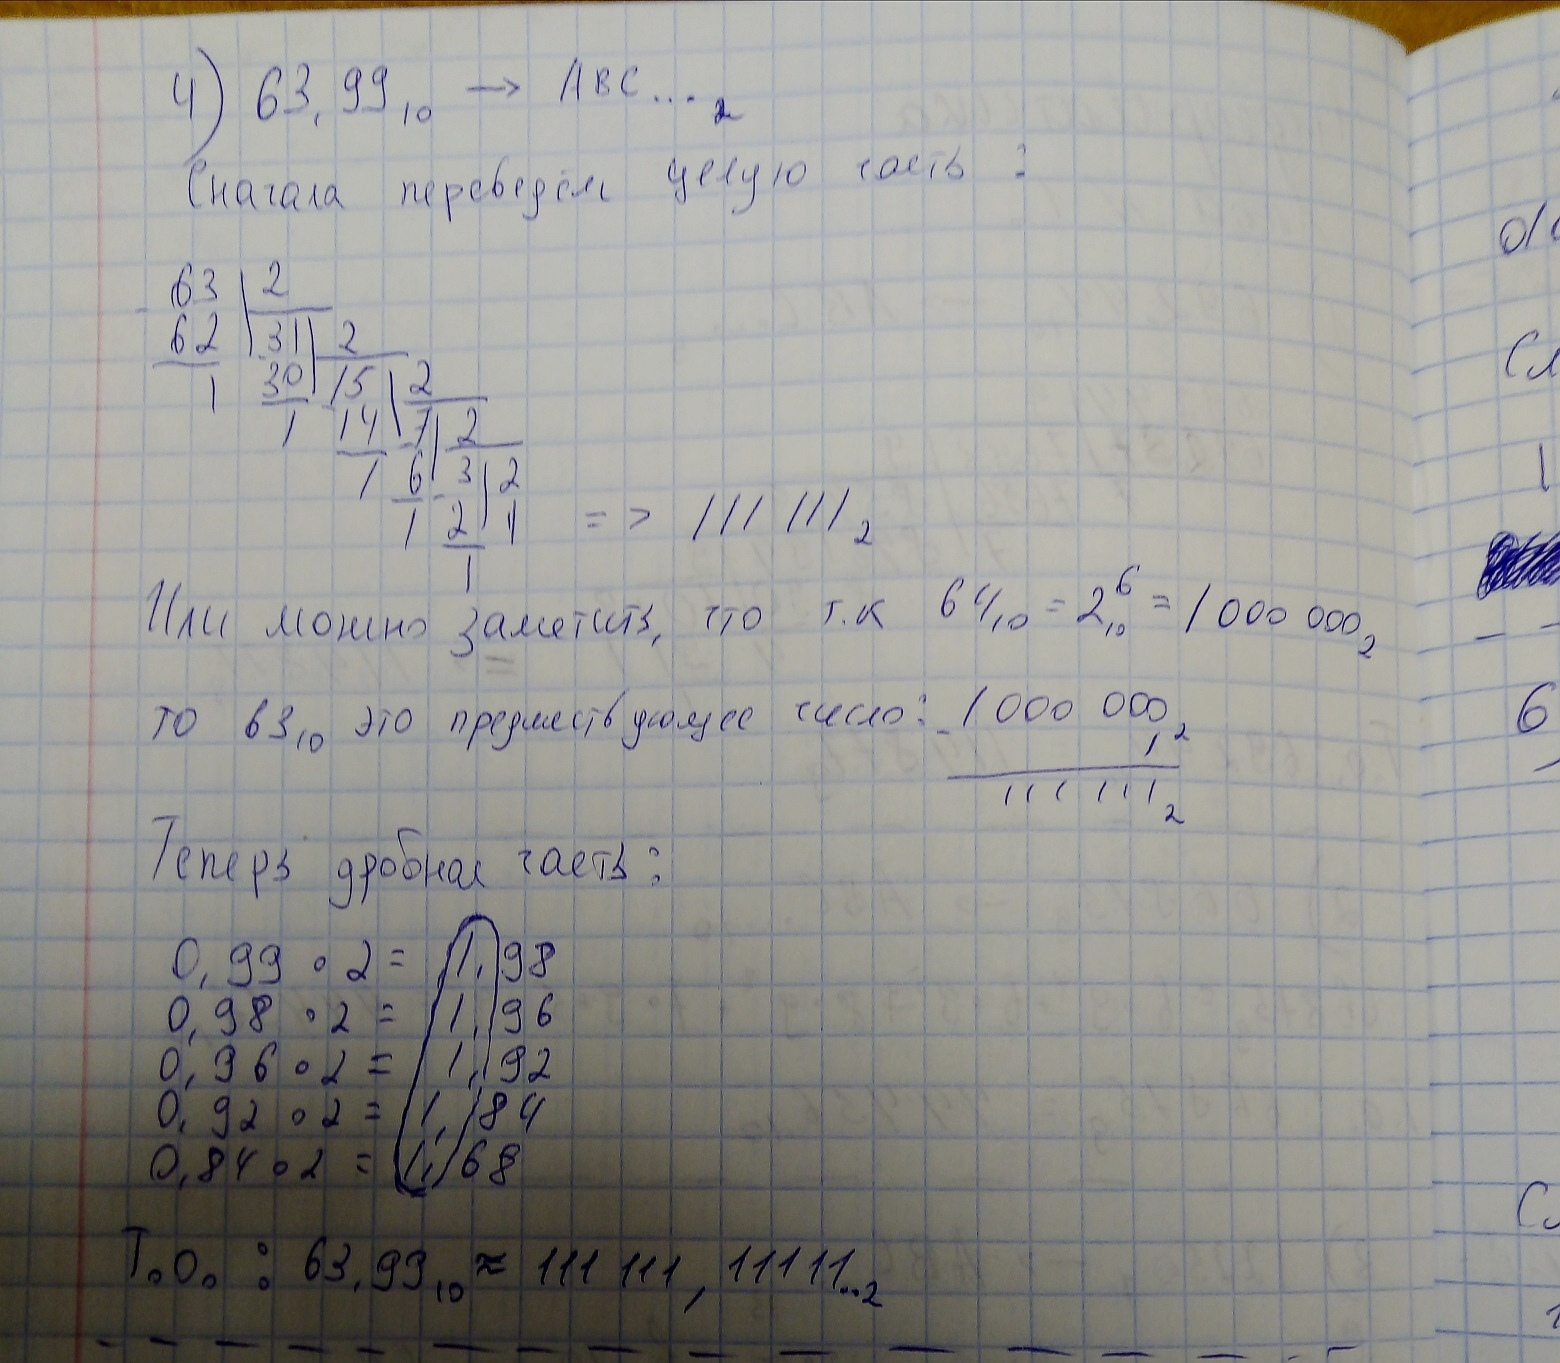 4) 63,99₁₀ → ABC...₂
Сначала переведём целую часть:
63 | 2
62 | 31 | 2
1 30 | 15 | 2
1 14 | 7 | 2
1 6 | 3 | 2
1 2 | 1 => 111 111₂
1
Или можно заметить, что т.к 64₁₀ = 2⁶₁₀ = 1 000 000₂
то 63₁₀ это предшествующее число: - 1 000 000₂
1
111 111₂
Теперь дробная часть:
0,99 · 2 = 1,98
0,98 · 2 = 1,96
0,96 · 2 = 1,92
0,92 · 2 = 1,84
0,84 · 2 = 1,68
Т.о. : 63,99₁₀ ≈ 111 111, 11111..₂
6